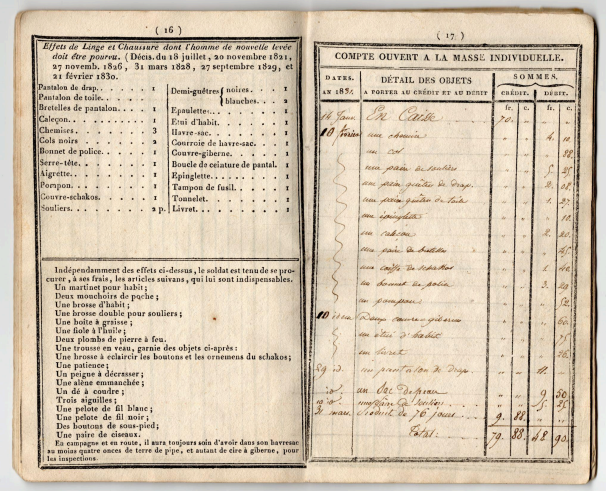 ( 16 )
Effets de Linge et Chaussure dont l'homme de nouvelle levée
doit être pourvu. (Décis. du 18 juillet, 20 novembre 1821,
27 novemb. 1826, 31 mars 1828, 27 septembre 1829, et
21 février 1830.
Pantalon de drap. . . . . 1
Pantalon de toile. . . .
Bretelles de pantalon. . . 1
Caleçon. . . . . 1
Chemises. . . . . 3
Cols noirs . . . . . 2
Bonnet de police. . . . . 1
Serre-tête. . . . . 1
Aigrette. . . . . 1
Pompon. . . . . 1
Couvre-schakos. . . . . 1
Souliers. . . . . 2 p.
Demi-guêtres { noires. . . 1
blanches. . 2
Epaulettes. . . . . 1
Etui d'habit. . . . . 1
Havre-sac. . . . . 1
Courroie de havre-sac. . . 1
Couvre-giberne. . . . . 1
Boucle de ceiature de pantal. 1
Epinglette. . . . . 1
Tampon de fusil. . . . . 1
Tonnelet. . . . . 1
Livret. . . . . 1
Indépendamment des effets ci-dessus, le soldat est tenu de se pro-
curer, à ses frais, les articles suivans, qui lui sont indispensables.
Un martinet pour habit ;
Deux mouchoirs de poche ;
Une brosse d'habit ;
Une brosse double pour souliers ;
Une boîte à graisse ;
Une fiole à l'huile ;
Deux plombs de pierre à feu.
Une trousse en veau, garnie des objets ci-après :
Une brosse à éclaircir les boutons et les ornemens du schakos ;
Une patience ;
Un peigne à décrasser ;
Une alène emmanchée ;
Un dé à coudre ;
Trois aiguilles ;
Une pelote de fil blanc ;
Une pelote de fil noir ;
Des boutons de sous-pied ;
Une paire de ciseaux.
En campagne et en route, il aura toujours soin d'avoir dans son havresac
au moins quatre onces de terre de pipe, et autant de cire à giberne, pour
les inspections.
( 17 )
COMPTE OUVERT A LA MASSE INDIVIDUELLE.
DATES. DÉTAIL DES OBJETS SOMMES.
AN 183 A PORTER AU CRÉDIT ET AU DÉBIT CRÉDIT. DÉBIT.
fr. c. fr. c.
14 Janv En Caisse 70.
10 février une chemise 4. 10
un col 28
une paire de souliers 5. 25
une paire guêtres de drap. 2. 08
une paire guêtres de toile 1. 27
une épinglette 10
un caleçon 2. 20
une paire de bretelles 45
une coiffe de schakos 1. 40
un bonnet de police 3. 29
un pompon 52
10 idem Deux couvre giberne 60
un étui d'habit 75
un livret 26
un pantalon de drap 11.
id un Sac de peau 9 50
une Paire de Souliers 5. 25
31 mars Produit de 76 jours 9. 88
Total 79. 88. 48. 90.